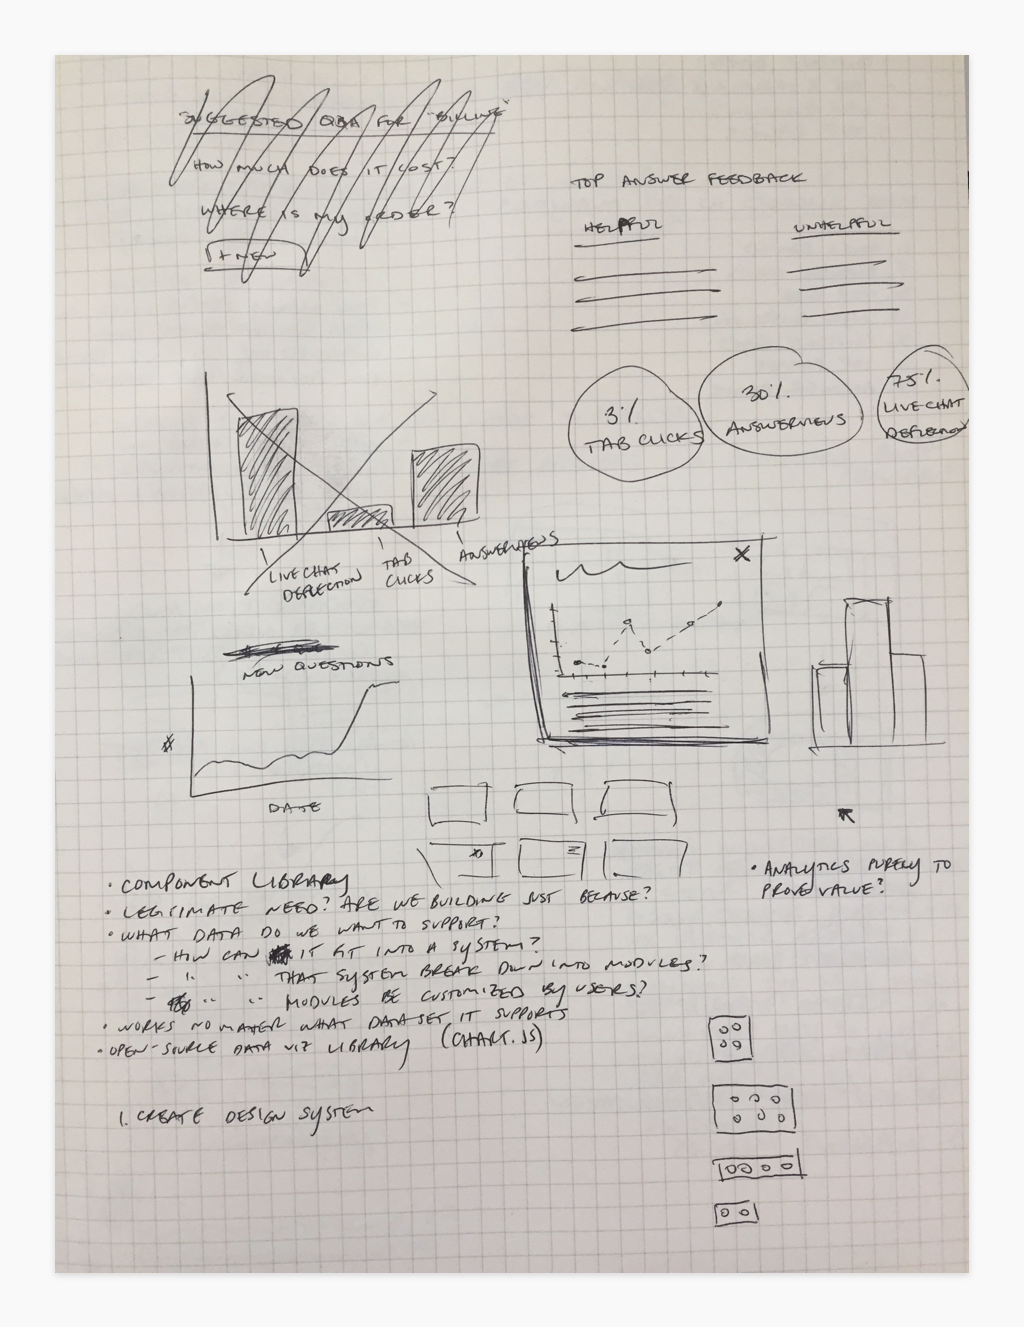 SUGGESTED Q&A FOR "BILLING"
HOW MUCH DOES IT COST?
WHERE IS MY ORDER?
+ NEW
TOP ANSWER FEEDBACK
HELPFUL
UNHELPFUL
3%
TAB CLICKS
30%
ANSWERVIEWS
75%
LIVE CHAT
DEFLECTION
LIVE CHAT
DEFLECTION
TAB
CLICKS
ANSWERVIEWS
X
NEW QUESTIONS
#
DATE
• COMPONENT LIBRARY
• LEGITIMATE NEED? ARE WE BUILDING JUST BECAUSE?
• WHAT DATA DO WE WANT TO SUPPORT?
- HOW CAN IT FIT INTO A SYSTEM?
- " " THAT SYSTEM BREAK DOWN INTO MODULES?
- " " MODULES BE CUSTOMIZED BY USERS?
• WORKS NO MATER WHAT DATASET IT SUPPORTS
• OPEN-SOURCE DATA VIZ LIBRARY (CHART.JS)
• ANALYTICS PURELY TO
PROVE VALUE?
1. CREATE DESIGN SYSTEM